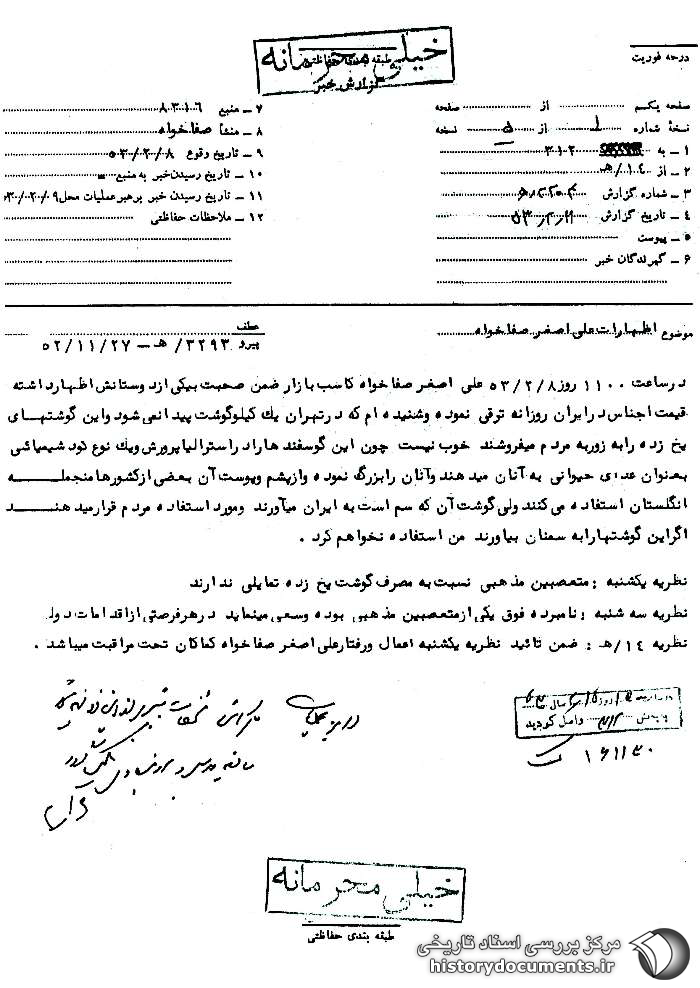 خیلی محرمانه
طبقه بندی حفاظتی
گزارش خبر
درجه فوریت
صفحه یکم از صفحه
نسخهٔ شماره ۱ از ۵ نسخه
۱ ـ به ۳۱۲
۲ ـ از ۱۴/هـ
۳ ـ شماره گزارش
۴ ـ تاریخ گزارش
۵ ـ پیوست
۶ ـ گیرندگان خبر
۷ ـ منبع ۸۳۱۰۶
۸ ـ منشأ صفاخواه
۹ ـ تاریخ وقوع ۵۳/۲۰/۸
۱۰ ـ تاریخ رسیدن خبر به منبع
۱۱ ـ تاریخ رسیدن خبر برهبر عملیات محل ۵۳۰/۰۲۰/۰۹
۱۲ ـ ملاحظات حفاظتی
موضوع اظهارات علی اصغر صفاخواه
عطف
پیرو ۳۲۹۳/هـ – ۵۲/۱۱/۲۷
در ساعت ۱۱۰۰ روز ۵۳/۲/۸ علی اصغر صفاخواه کاسب بازار ضمن صحبت بیکی از دوستانش اظهار داشته
قیمت اجناس در ایران روزانه ترقی نموده وشنیده ام که در تهران یك کیلو گوشت پیدا نمی شود واین گوشتهای
یخ زده را به زور به مردم میفروشند خوب نیست چون این گوسفند ها را در استرالیا پرورش ویك نوع کود شیمیائی
بعنوان غذای حیوانی به آنان میدهند وآنان را بزرگ نموده واز پشم وپوست آن بعضی از کشورها منجمله
انگلستان استفاده می کنند ولی گوشت آن که سم است به ایران میآورند ومورد استفاده مردم قرار میدهند
اگر این گوشتها را به سمنان بیاورند من استفاده نخواهم کرد .
نظریه یکشنبه : متعصبین مذهبی نسبت به مصرف گوشت یخ زده تمایلی ندارند
نظریه سه شنبه : نامبرده فوق یکی از متعصبین مذهبی بوده وسعی مینماید در هر فرصتی از اقدامات دولت
نظریه ۱۴/هـ : ضمن تائید نظریه یکشنبه اعمال ورفتار علی اصغر صفاخواه کماکان تحت مراقبت میباشد .
واصل گردید
۱۶۱۱۳۰
خیلی محرمانه
طبقه بندی حفاظتی
مرکز بررسی اسناد تاریخی
historydocuments.ir